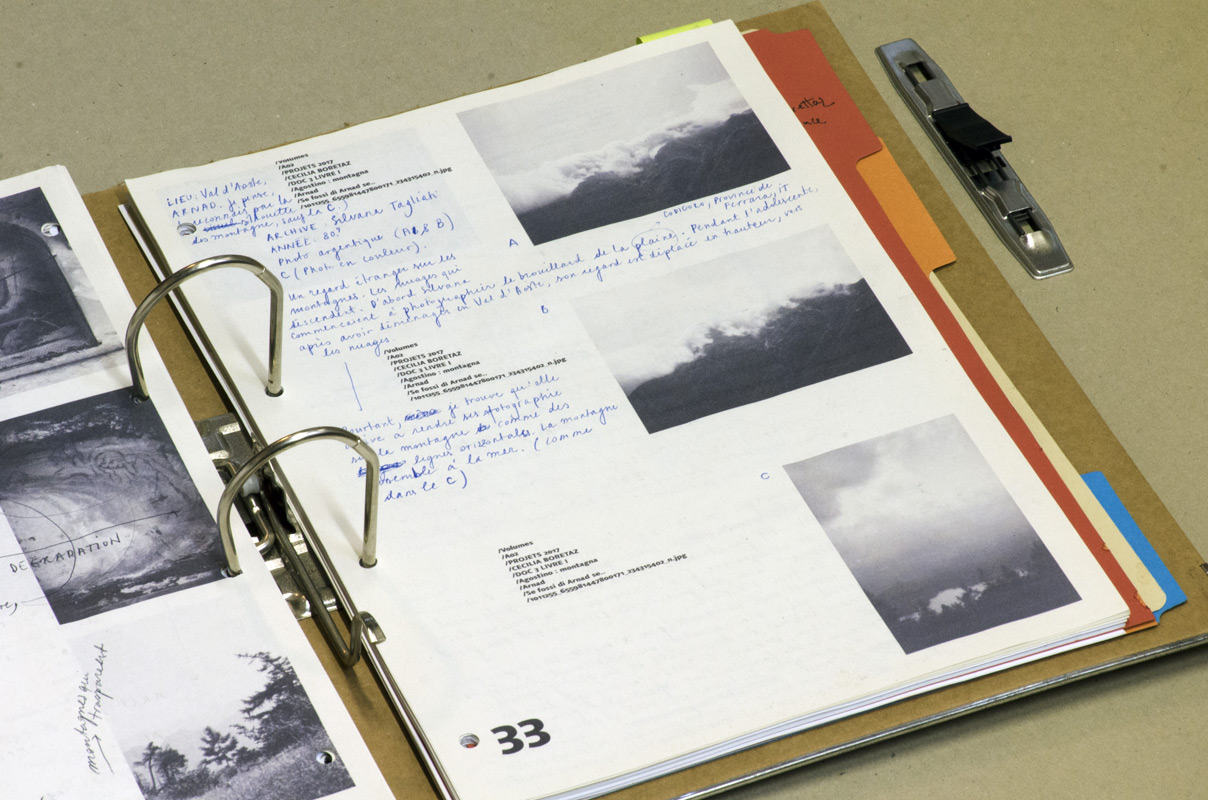 DEGRADATION
montagnes qui
trasparent
/Volumes
/A02
/PROJETS 2017
/CECILIA BORETAZ
/DOC 3 LIVRE I
/Agostino : montagna
/Arnad
/Se fossi di Arnad se..
/1011255_655981447800171_234315402_n.jpg
LIEU: Val d'Aoste,
ARNAD. Je pense,
reconnais par la
silhouette
des montagne, sauf la C.)
ARCHIVE Silvana Tagliati
ANNÉE: 80?
Photo argentique (A & B)
C (Phot. en couleur).
A
CODIGORO, Province de
Ferrara, IT
Un regard étranger sur les
montagnes. Les nuages qui
descendent. D'abord Silvana
commençait à photographier le brouillard de la plaine. Pendant l'adolescente,
après avoir déménagés en Val d'Aoste, son regard est déplacé en hauteur, vers
les nuages.
B
/Volumes
/A02
/PROJETS 2017
/CECILIA BORETAZ
/DOC 3 LIVRE I
/Agostino : montagna
/Arnad
/Se fossi di Arnad se..
/1011255_655981447800171_234315402_n.jpg
Pourtant, je trouve qu'elle
arrive a rendre ses fotographie
sur la montagne comme des
lignes orizontals. La montagne
resemble à la mer. (comme
dans le C)
C
/Volumes
/A02
/PROJETS 2017
/CECILIA BORETAZ
/DOC 3 LIVRE I
/Agostino : montagna
/Arnad
/Se fossi di Arnad se..
/1011255_655981447800171_234315402_n.jpg
33